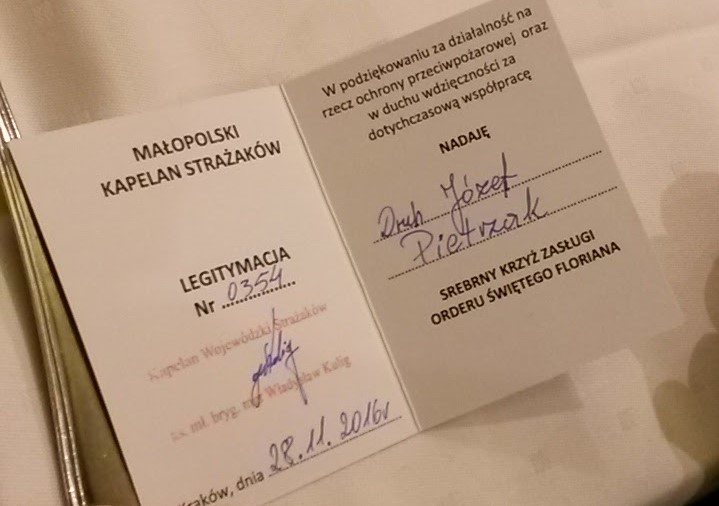 MAŁOPOLSKI
KAPELAN STRAŻAKÓW
LEGITYMACJA
Nr 0354
Kapelan Wojewódzki Strażaków
ks. mł. bryg. mgr Władysław Kulig
Kraków, dnia 28.11.2016r
W podziękowaniu za działalność na
rzecz ochrony przeciwpożarowej oraz
w duchu wdzięczności za
dotychczasową współpracę
NADAJĘ
Druh Józef
Pietrzak
SREBRNY KRZYŻ ZASŁUGI
ORDERU ŚWIĘTEGO FLORIANA